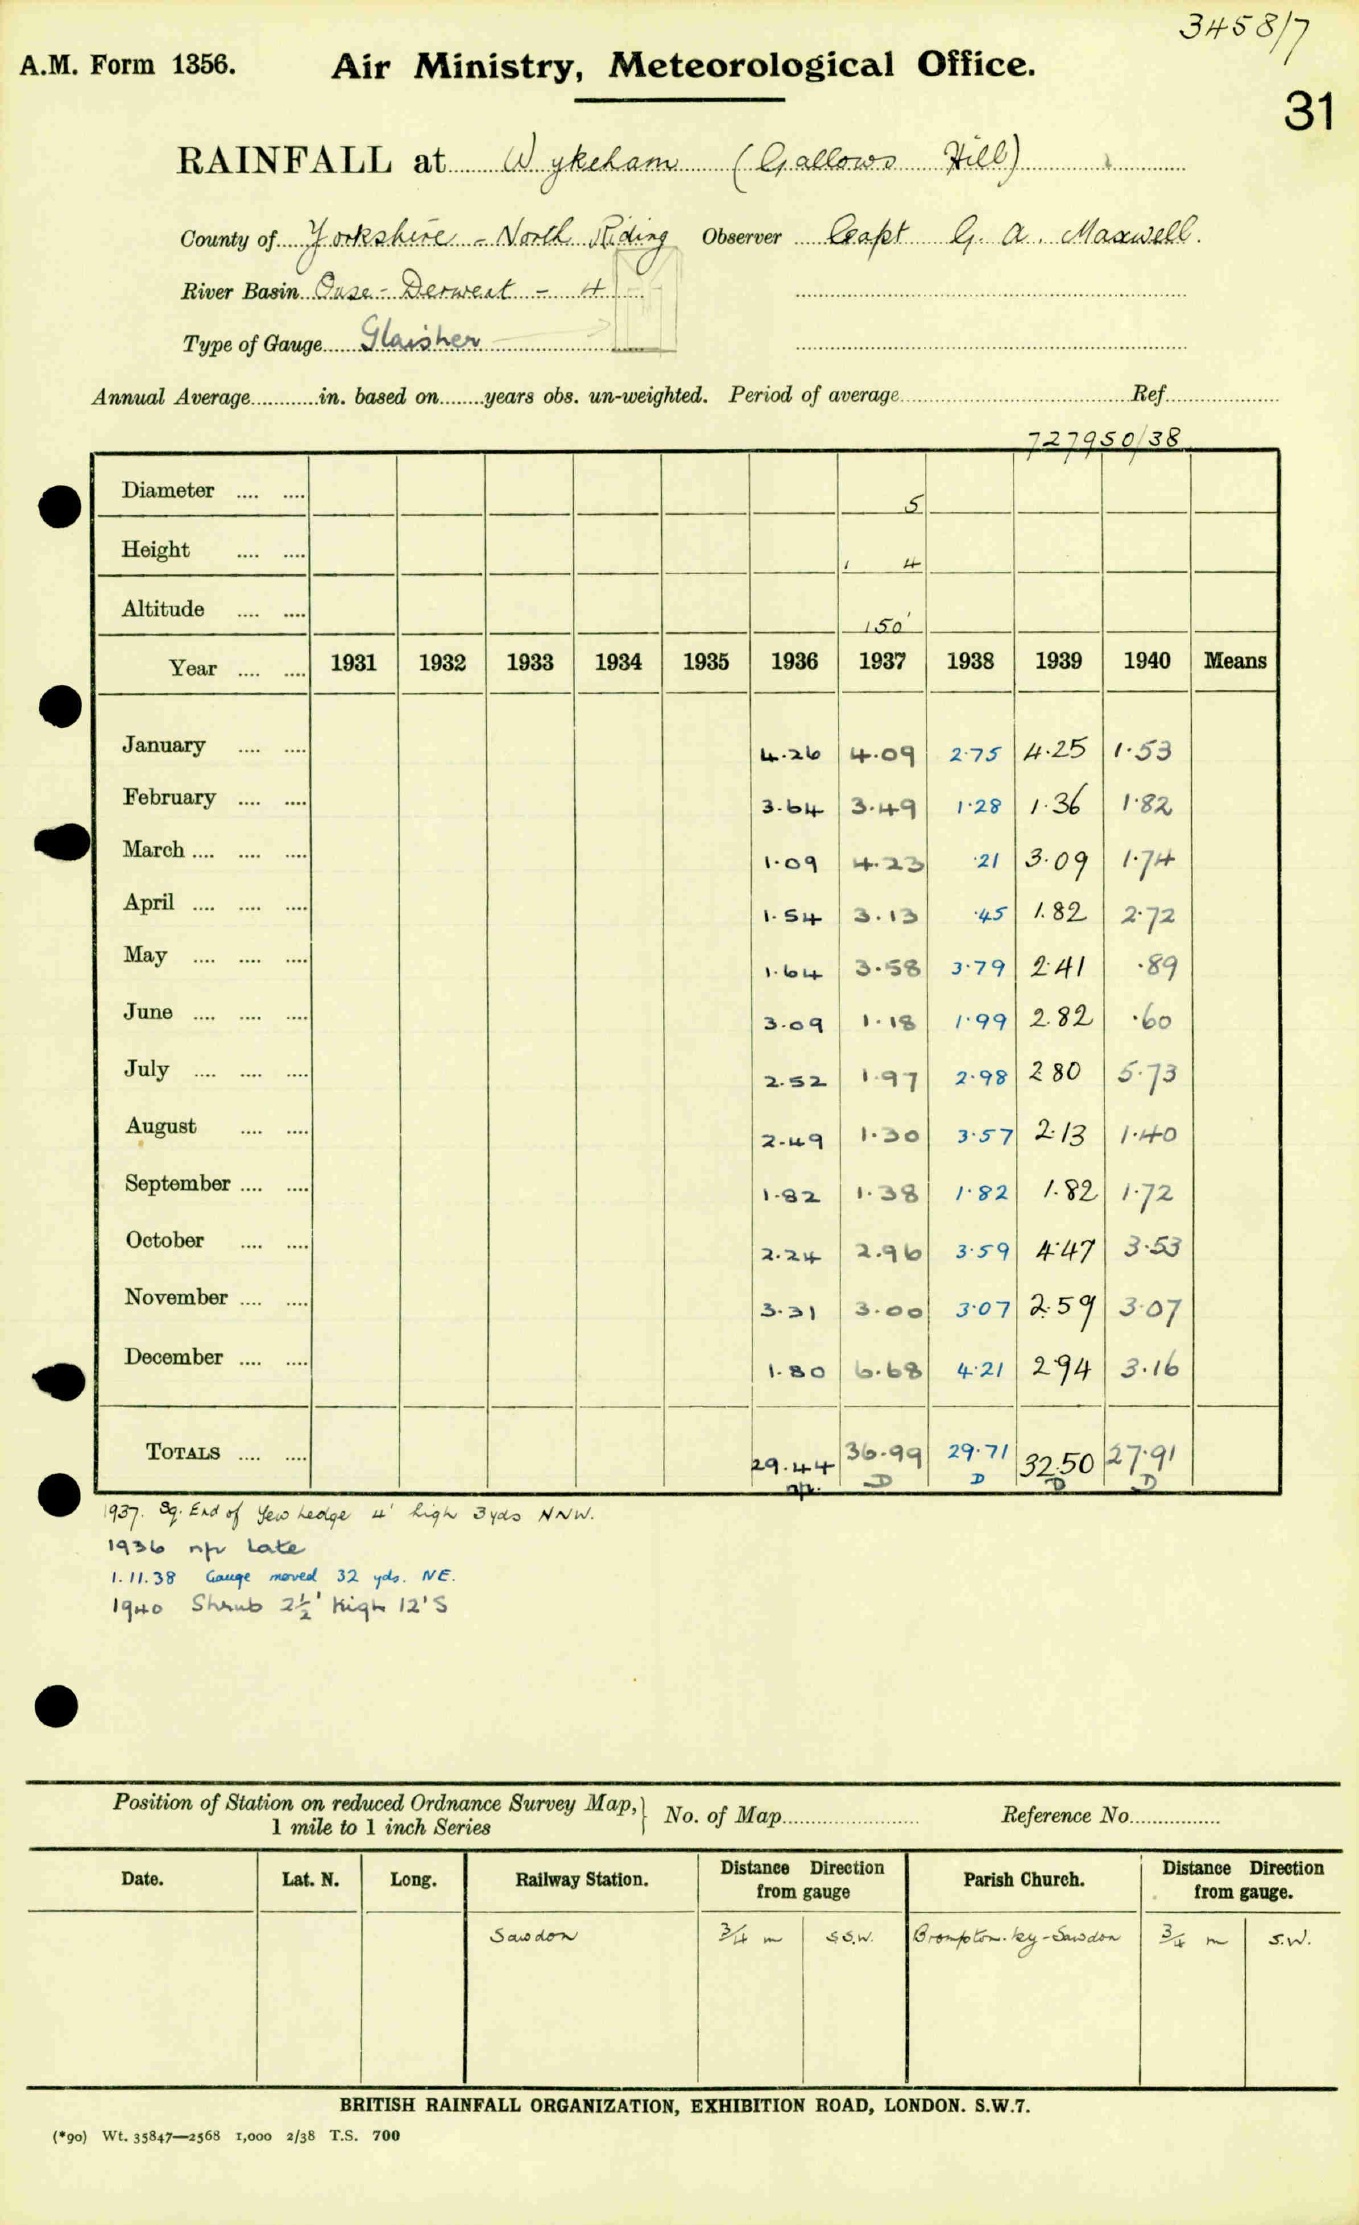 3458/7
A.M. Form 1356. Air Ministry, Meteorological Office.
31
RAINFALL at Wykeham (Gallows Hill)
County of Yorkshire - North Riding Observer Capt G. A. Maxwell.
River Basin Ouse - Derwent - 4
Type of Gauge Glaisher
Annual Average............in. based on........years obs. un-weighted. Period of average........................................Ref....................
727950/38
Diameter .... .... 5
Height .... .... 1 4
Altitude .... .... 150'
Year .... .... 1931 1932 1933 1934 1935 1936 1937 1938 1939 1940 Means
January .... .... 4.26 4.09 2.75 4.25 1.53
February .... .... 3.64 3.49 1.28 1.36 1.82
March .... .... .... 1.09 4.23 .21 3.09 1.74
April .... .... .... 1.54 3.13 .45 1.82 2.72
May .... .... .... 1.64 3.58 3.79 2.41 .89
June .... .... .... 3.09 1.18 1.99 2.82 .60
July .... .... .... 2.52 1.97 2.98 2.80 5.73
August .... .... 2.49 1.30 3.57 2.13 1.40
September .... .... 1.82 1.38 1.82 1.82 1.72
October .... .... 2.24 2.96 3.59 4.47 3.53
November .... .... 3.31 3.00 3.07 2.59 3.07
December .... .... 1.80 6.68 4.21 2.94 3.16
TOTALS .... .... 29.44 36.99 29.71 32.50 27.91
np. D D D D
1937. Sq. End of Yew hedge 4' high 3 yds NNW.
1936 np Late
1.11.38 Gauge moved 32 yds. NE.
1940 Shrub 2½' High 12' S
Position of Station on reduced Ordnance Survey Map, 1 mile to 1 inch Series } No. of Map........................ Reference No.................
Date. Lat. N. Long. Railway Station. Distance Direction from gauge Parish Church. Distance Direction from gauge.
Sawdon ¾ m S.S.W. Brompton-by-Sawdon ¾ m S.W.
BRITISH RAINFALL ORGANIZATION, EXHIBITION ROAD, LONDON. S.W.7.
(*90) Wt. 35847—2568 1,000 2/38 T.S. 700